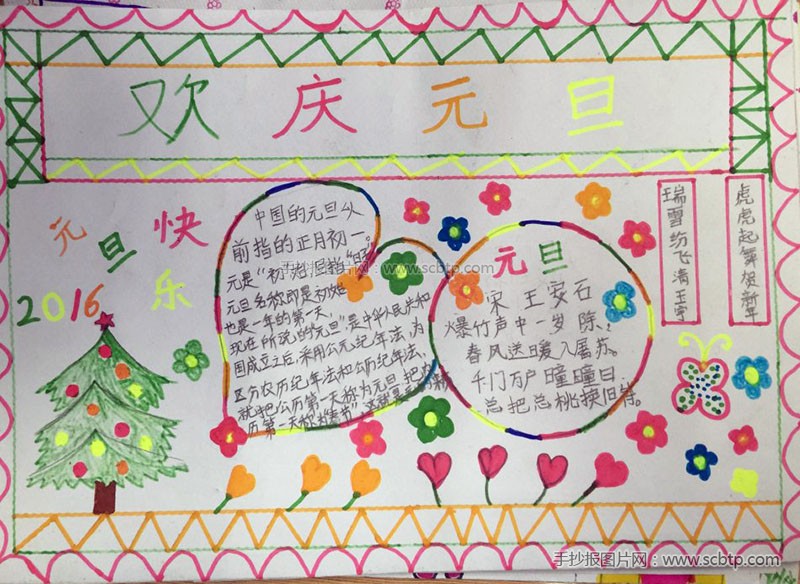 欢庆元旦
元旦快乐
2016
中国的元旦从
前指的正月初一
元是“初”“始”,旦指“日”
元旦名称即是初始
也是一年的第一天。
现在所说的元旦,是中华人民共和
国成立之后,采用公元纪年法,为
区分农历纪年法和公历纪年法,
就把公历第一天称为元旦,把农
历第一天称为春节,这就是
元旦
宋 王安石
爆竹声中一岁 除,
春风送暖入屠苏。
千门万户 瞳瞳日
总把总桃换旧符。
瑞雪纷飞清玉宇
虎虎起舞贺新年
手抄报图片网:www.scbtp.com
手抄报图片网:www.scbtp.com